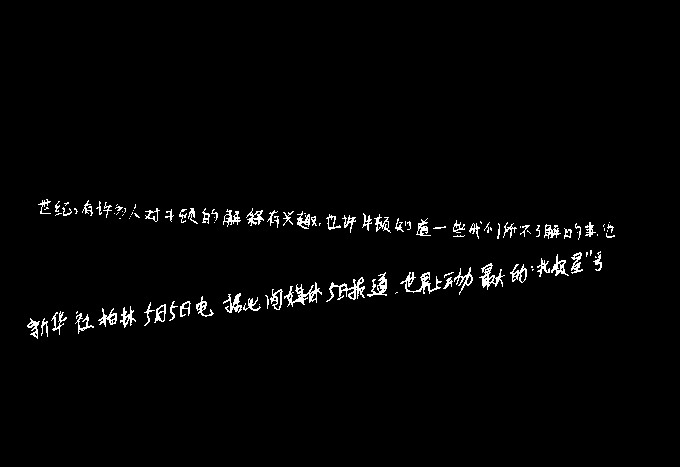 世纪,有许多人对牛顿的解释有兴趣,也许牛顿知道一些我们所不了解的事,他
新华社柏林5月5日电 据此间媒体5日报道,世界上动力最大的“北极星”号